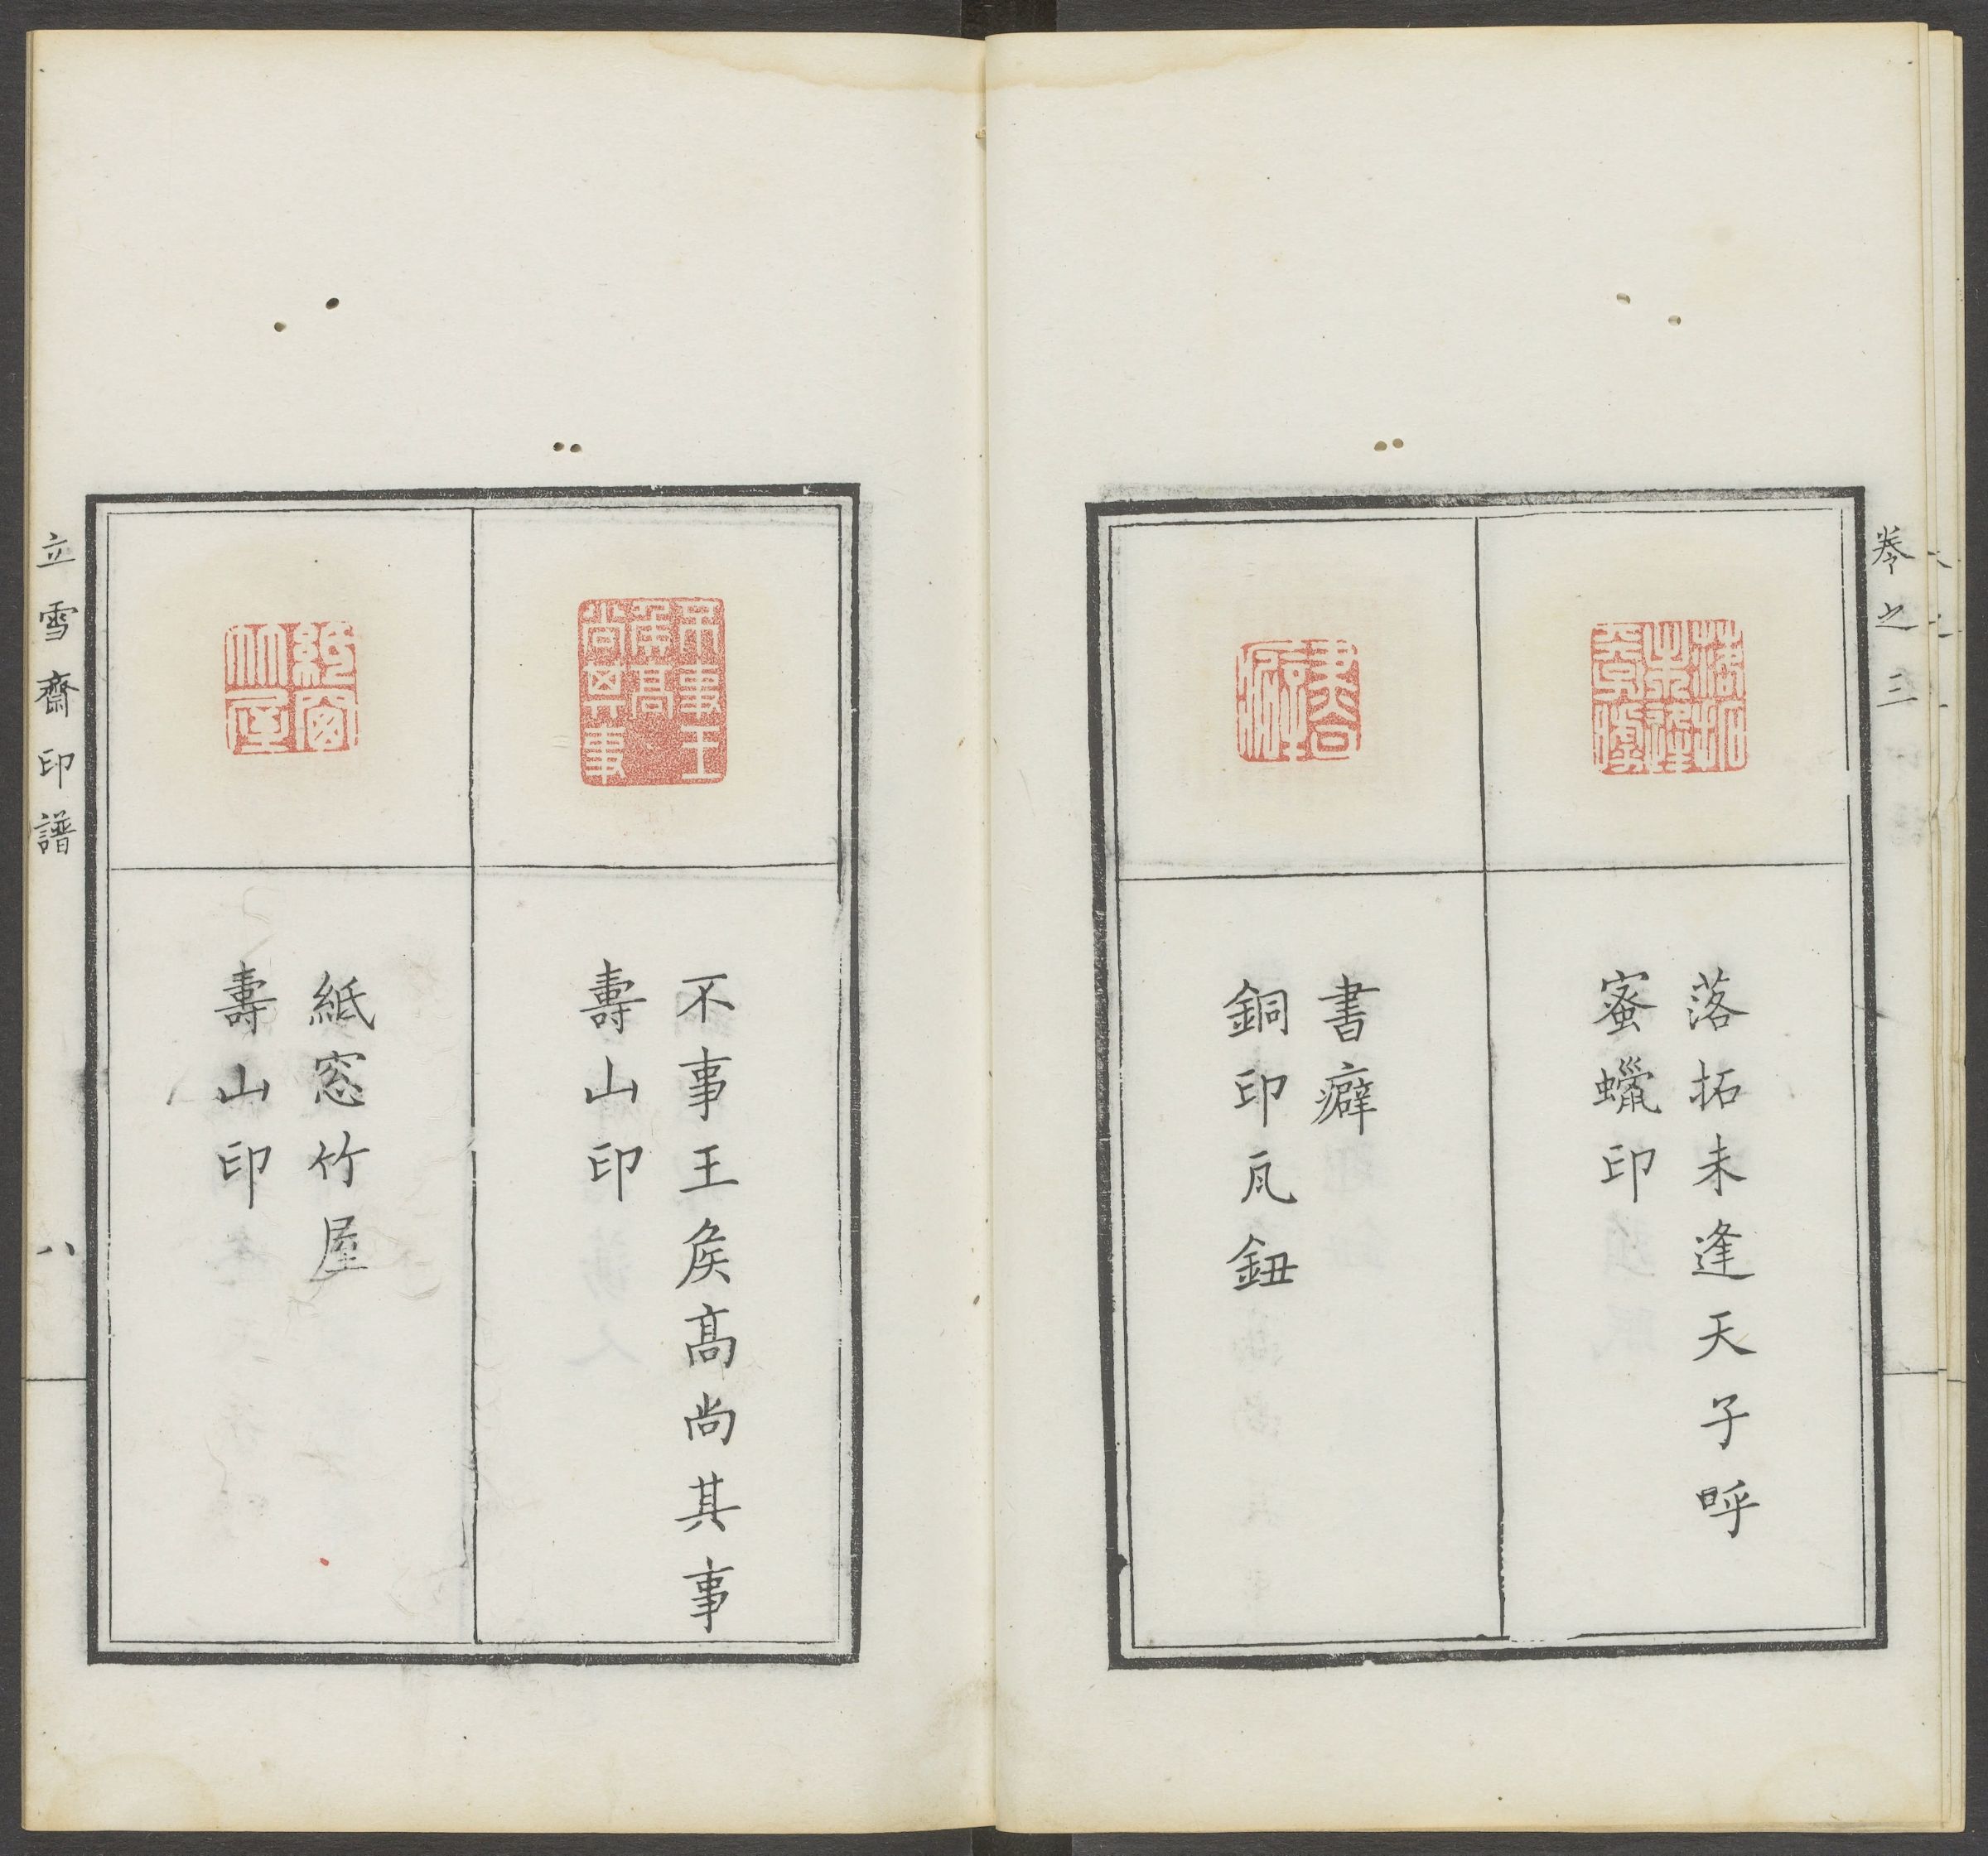 卷之三
落拓未逢天子呼
蜜蠟印
書癖
銅印瓦鈕
不事王矦髙尚其事
壽山印
紙窓竹屋
壽山印
立雪齋印譜
八